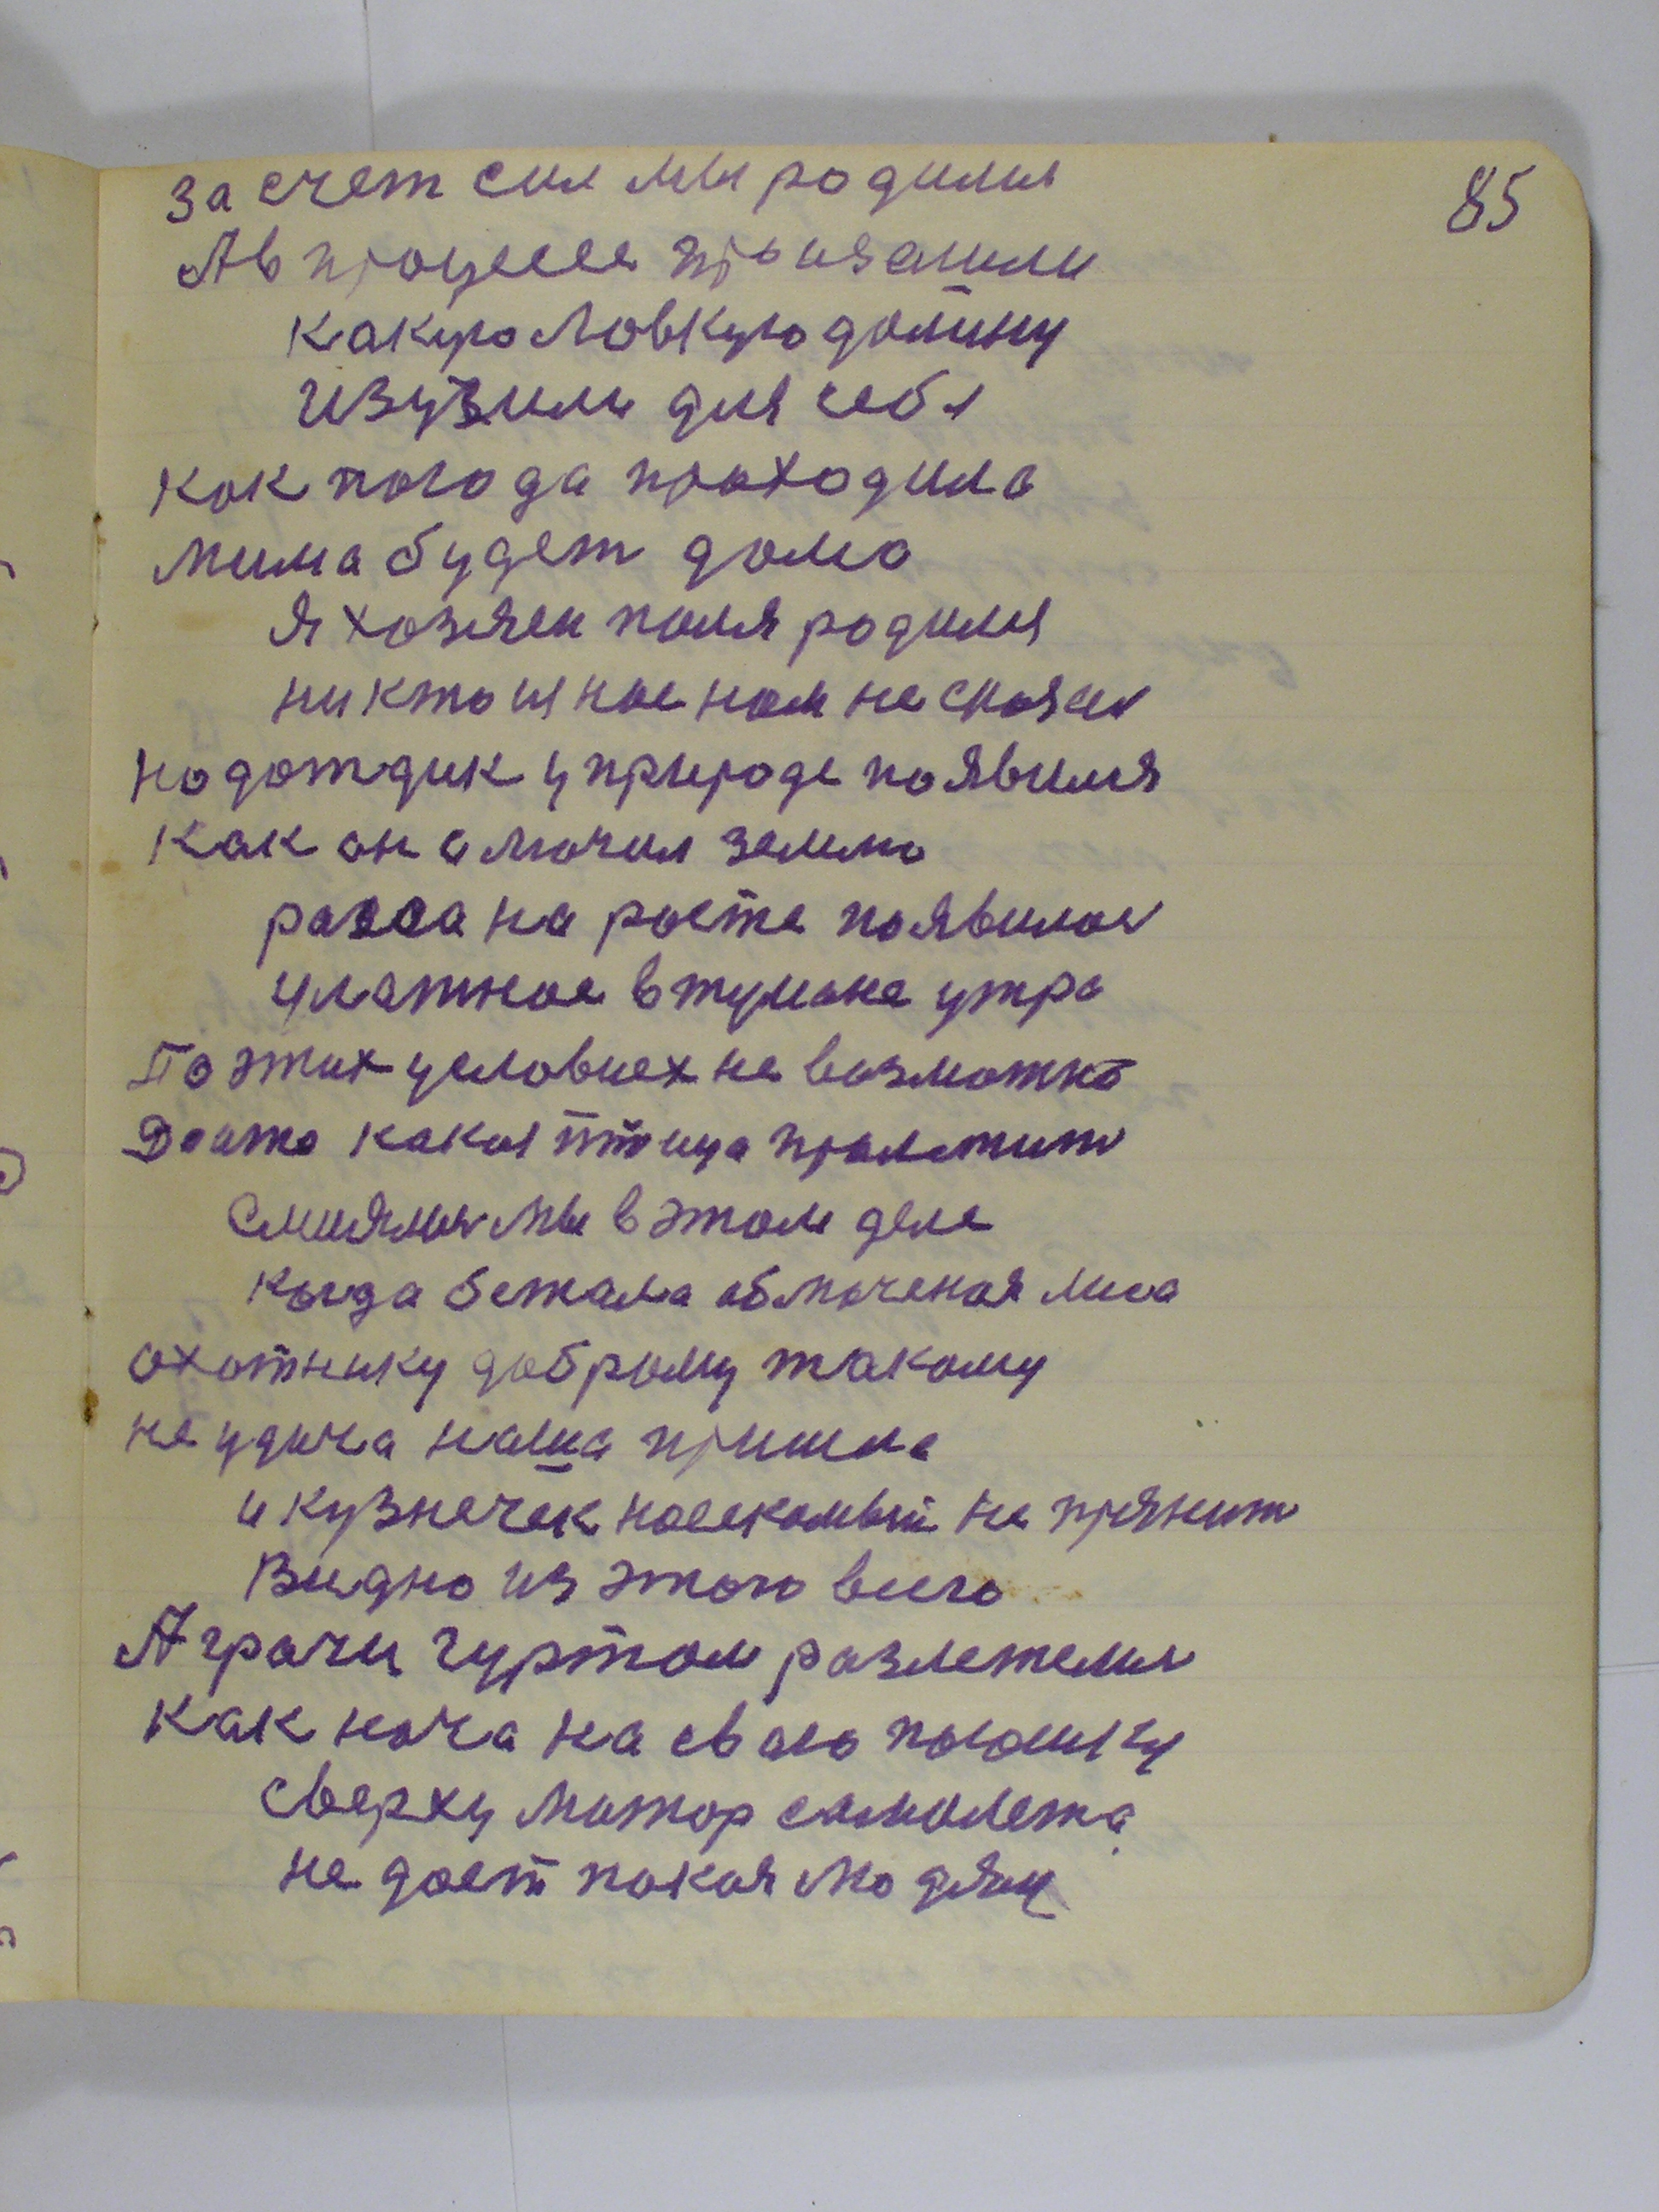 85
За счет сил мы родилися
А в процессе произашли
какую ловкую долину
изузили для себя
как погода проходила
мима будет дома
я хозяеи поля родился
ни кто иное нам не
но дотждик у природе появился
Как он смочил землю
расса на росте появилось
улатное в тумане утро
По этих условиех не возмотжно
Доить какая птица пролетит
Смиялись мы в этом деле
когда бежала обмоченая лиса
охотнику доброму такому
не удача наша пришла
и кузнечек насекомый не прянит
Видно из этого всего
А грачи гуртом разлетелись
Как ноча на сваю посошку
сверху мотор самолета
не дает покоя людям